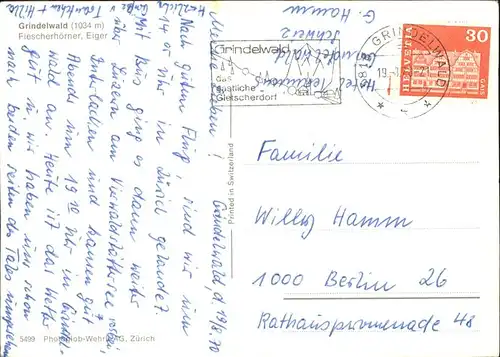 Grindelwald (1034 m)
Fiescherhörner, Eiger
Grindelwald, d. 19/8.70
Meine Lieben!
Nach gutem Flug, sind wir um
14 05 Uhr in Zürich gelandet.
Mit Bus ging es dann weiter
über Luzern am Vierwaldstättersee vorbei,
Interlaken und kamen gut
Abends um 19 20 Uhr in Grindel-
wald an. Heute ist das Wetter
gut u. wir haben uns schon
nach beiden Seiten des Tales umgesehen
G. Hamm
Hotel
Grindelwald
Schweiz
Grindelwald
das
gastliche
Gletscherdorf
3818 GRINDELWALD
HELVETIA
30
GAIS
Familie
Willy Hamm
1000 Berlin 26
Rathauspromenade 48
Printed in Switzerland
5499 Photoglob-Wehrli AG, Zürich